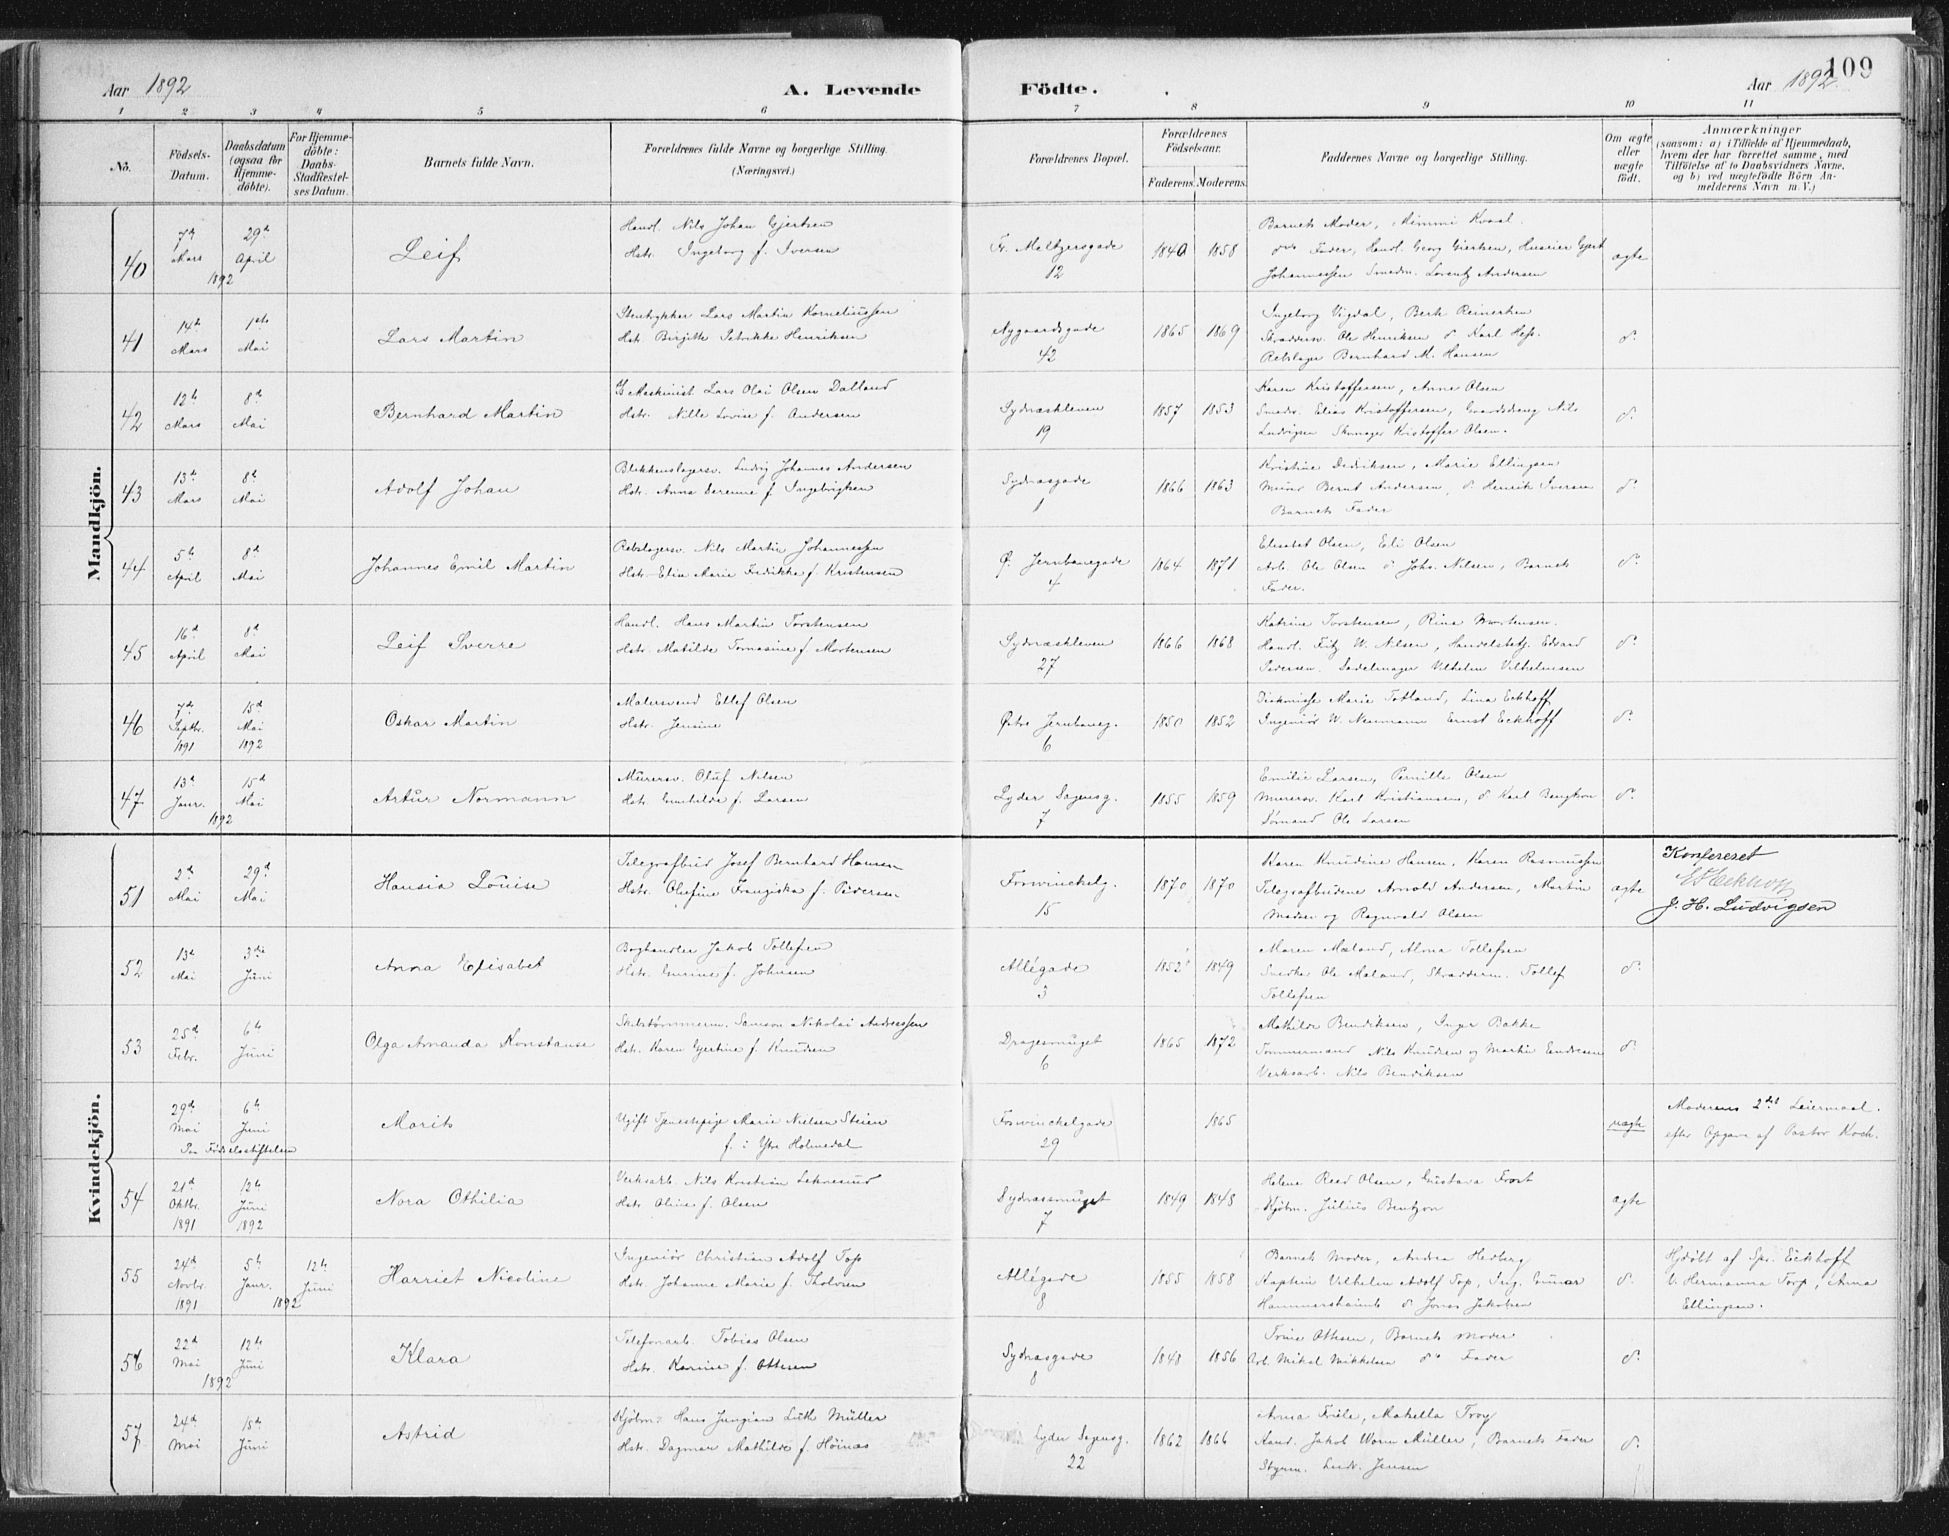 Aar 1892
A. Levende Födte.
Aar 1892
109
1 2 3 4 5 6 7 8 9 10 11
No.
Födsels-Datum.
Daabsdatum (ogsaa for Hjemme-döbte).
For Hjemme-döbte: Daabs-Stadfæstel-ses Datum.
Barnets fulde Navn.
Forældrenes fulde Navne og borgerlige Stilling. (Næringsvei.)
Forældrenes Bopæl.
Forældrenes Födselsaar.
Faderens. Moderens.
Faddernes Navne og borgerlige Stilling.
Om ægte eller uægte födt.
Anmærkninger
(saasom: a) i Tilfælde af Hjemmedaab, hvem der har forrettet samme, med Tilföielse af to Daabsvidners Navne, og b) ved uægtefödte Börn An-melderens Navn m. V.)
Mandkjön.
40 7de Mars 29de April 1892
Leif
Handl. Nils Johan Gjertsen
Hstr. Ingeborg f. Iversen
Fr. Meltzersgade 12
1840 1858
Barnets Moder, Mimmi Kvaal
do Fader, Handl. Georg Giertsen, Huseier Gjert
Johannessen Smedm. Lorentz Andersen
ægte
41 14de Mars 1ste Mai
Lars Martin
Stenhykker Lars Martin Korneliussen
Hstr. Birgitte Henriksen
Nygaardsgade 42
1865 1869
Ingeborg Vigdal, Berte Reinertsen
Skrædersv. Ole Henriksen do Karl Hess.
Rebslager Bernhard M. Hansen
do
42 12te Mars 8de Mai
Bernhard Martin
Maskinist Lars Olai Olsen Dalland
Hstr. Nille Lovise f. Andersen
Sydnæskleven 19
1857 1853
Karen Kristoffersen, Anne Olsen
Smeds. Elias Kristoffersen, Gaardsdreng Nils
Ludvigsen Skomager Kristoffer Olsen.
do
43 13de Mars 8de Mai
Adolf Johan
Blikkenslagersv. Ludvig Johannes Andersen
Hstr. Anna Serenne f. Ingebrigtsen
Sydnæsgade 1
1866 1863
Kristine Dedriksen, Marie Ellingsen
Murer Bernt Andersen, do Henrik Iversen
Barnets Fader
do
44 5te April 8de Mai
Johannes Emil Martin
Rebslagersv. Nils Martin Johannessen
Hstr. Elin Marie Fredrikke f. Kristensen
Ø. Jernbanegade 4
1864 1871
Elisabet Olsen, Eli Olsen
Arb. Ole Olsen do Johs. Nilsen, Barnets
Fader.
do
45 16de April 8de Mai
Leif Sverre
Handl. Hans Martin Torstensen
Hstr. Matilde Tomasine f. Mortensen
Sydnæskleven 27
1866 1868
Katrine Torstensen, Rina Mortensen.
Handl. Fritz W. Nilsen, Handelsbetj. Edvard
Pedersen. Sadelmager Vilhelm Vilhelmsen
do
46 7de Septbr. 1891 15de Mai 1892
Oskar Martin
Malersvend Ellef Olsen
Hstr. Jensine
Østre Jernbaneg. 6
1850 1852
Diakonisse Marie Totland, Lina Eckhoff
Ingeniör W. Neumann Ernst Eckhoff
do
47 13de Janr. 15de Mai 1892
Artur Normann
Murersv. Oluf Nilsen
Hstr. Emehilde f. Larsen
Lyder Sagensg. 7
1855 1859
Emilie Larsen, Pernille Olsen
Murersv. Karl Kristiansen, do Karl Bengtson
Sömand Ole Larsen
do
Kvindekjön.
51 2de Mai 29de Mai
Hansia Louise
Telegrafbud Josef Bernhard Hansen
Hstr. Olufine Franziska f. Pedersen
Forswinckelg. 15
1870 1870
Karen Knudine Hansen, Karen Rasmussen
Telegrafbudene Arnold Andersen, Martin
Madsen og Ragnvald Olsen
ægte
Konfereret
E. Eckhoff
J. H. Ludvigsen
52 13de Mai 3die Juni
Anna Elisabet
Boghandler Jakob Tollefsen
Hstr. Emrine f. Johnsen
Allégade 3
1852 1849
Maren Mæland, Alma Tollefsen
Snedker Ole Mæland, Skrædderm. Tollef
Tollefsen
do
53 25de Febr. 6te Juni
Olga Amanda Konstanse
Skibstömmerm. Samson Nikolai Andreassen
Hstr. Karen Gjertine f. Knudsen
Dragesmuget 6
1865 1872
Mathilde Bendiksen, Inger Bakke
Tommermand Nils Knudsen og Martin Endresen
Verksarb. Nils Bendiksen
do
29de Mai 6te Juni
Paa Födselsstiftelsen
Marits
Ugift Tjenestepige Marie Nielsen Steien
f. i Ytre Holmedal
Forswinckelgade 29
1865
uægte
Moderens 2det Leiermaal.
efter Opgave af Pastor Koch.
54 21de Oktbr. 1891 12te Juni 1892
Nora Othilia
Verksarb. Nils Kristian Lekresund
Hstr. Oline f. Olsen
Sydnæssmuget 7
1849 1848
Helene Reed Olsen, Gustava Frost
Kjöbm. Julius Bentzon
ægte
55 24de Novbr. 1891 5te Janr. 1892 12te Juni
Harriet Nicoline
Ingeniör Christian Adolf Top
Hstr. Johanne Marie f. Tholvsen
Allégade 8
1855 1858
Barnets Moder, Andrea Hedberg
Kaptein Vilhelm Adolf Top, Ing. Gunnar
Hammershaimb do Jonas Jakobsen
do
Hjdöbt af Spr. Eckhoff
V. Hermanna Torp, Anna
Ellingsen.
56 22de Mai 12te Juni 1892
Klara
Telefonarb. Tobias Olsen
Hstr. Karine f. Ottesen
Sydnæsgade 8
1848 1856
Trine Ottesen, Barnets Moder
Arb. Mikal Mikkelsen do Fader
do
57 24de Mai 15de Juni
Astrid
Kjöbm: Hans Jungian Luth Müller
Hstr. Dagmar Mathilde f. Höinæs
Lyder Sagensg. 22
1862 1866
Anna Friele, Makella Troy
Kand. Jakob Worm Müller, Barnets Fader
Styrm. Ludv. Jensen
do